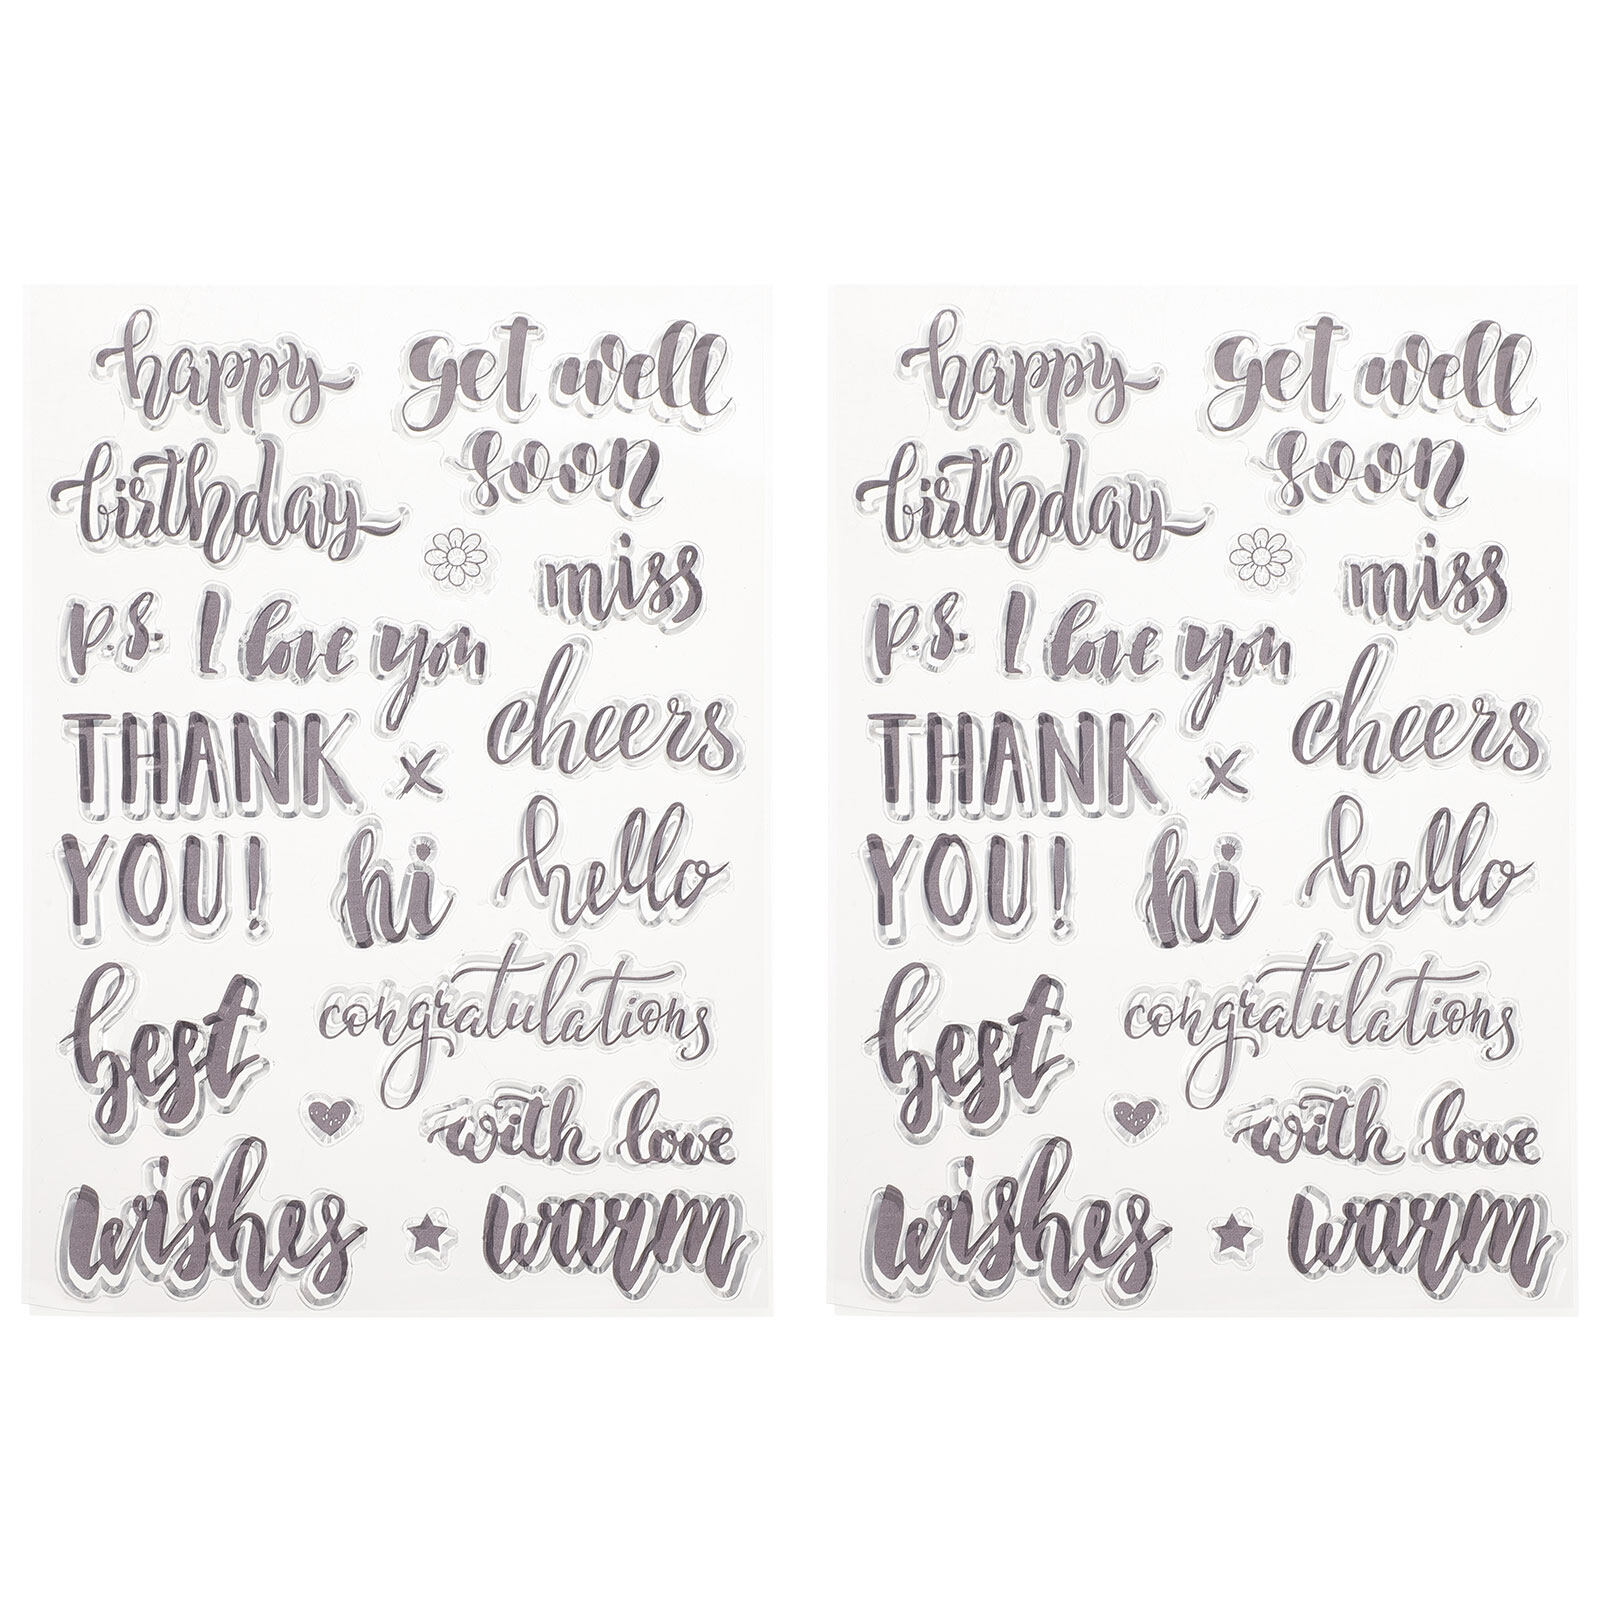 happy
birthday
get well
soon
miss
p.s. I love you
cheers
THANK
YOU!
x
hi
hello
best
wishes
congratulations
with love
warm
happy
birthday
get well
soon
miss
p.s. I love you
cheers
THANK
YOU!
x
hi
hello
best
wishes
congratulations
with love
warm